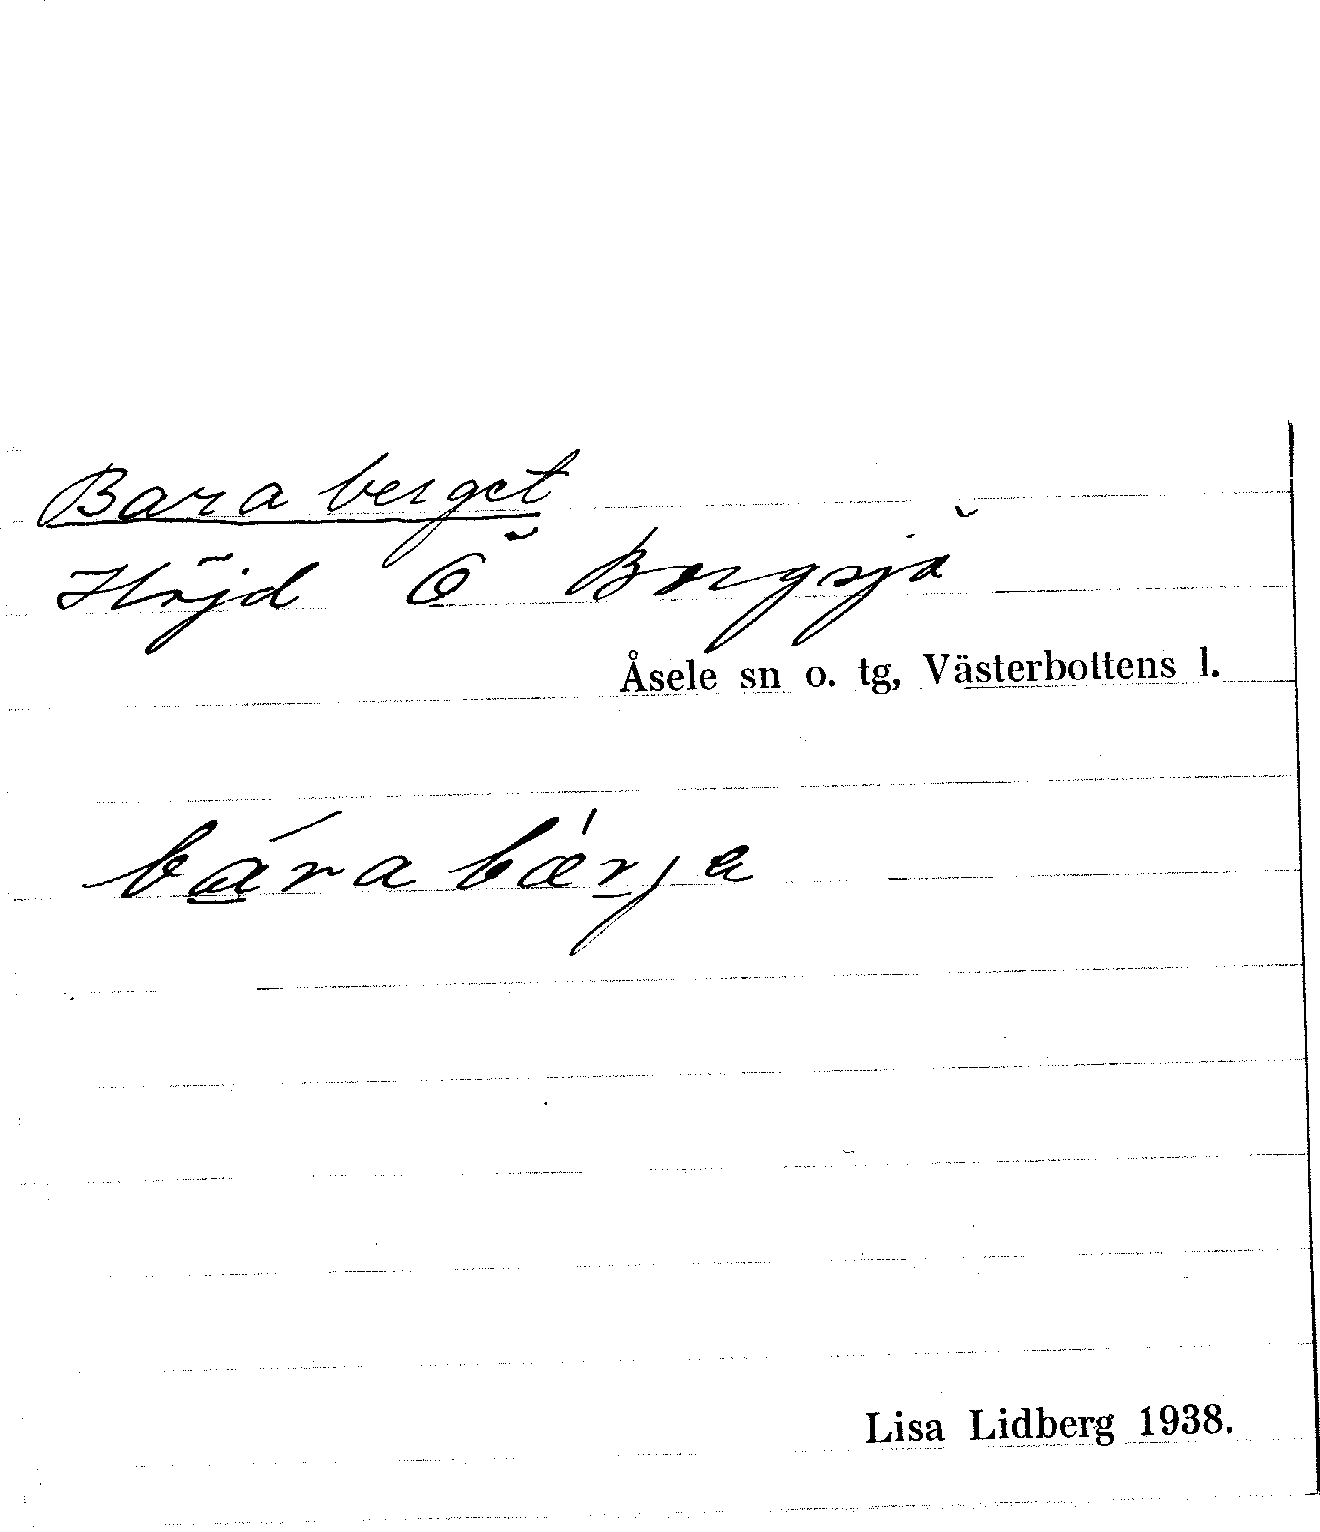 Baraberget
Höjd Ö Borgsjö
Åsele sn o. tg, Västerbottens l.
bára bǽrje
Lisa Lidberg 1938.